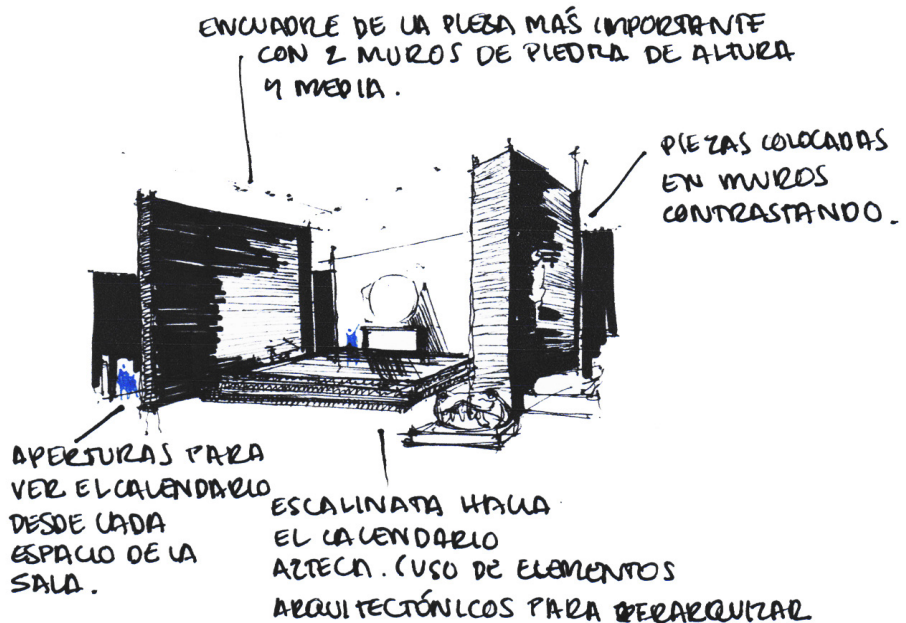 ENCUADRE DE LA PIEZA MAS IMPORTANTE
CON 2 MUROS DE PIEDRA DE ALTURA
Y MEDIA.
PIEZAS COLOCADAS
EN MUROS
CONTRASTANDO.
APERTURAS PARA
VER EL CALENDARIO
DESDE CADA
ESPACIO DE LA
SALA.
ESCALINATA HACIA
EL CALENDARIO
AZTECA. (USO DE ELEMENTOS
ARQUITECTÓNICOS PARA JERARQUIZAR